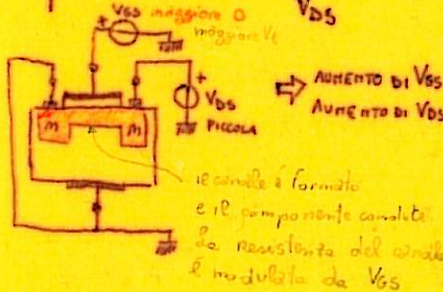 VDS
VGS maggiore 0
maggiore Vt
+
+
VDS
PICCOLA
⇨ AUMENTO DI VGS
AUMENTO DI VDS
M
M
il canale è formato
e il componente conduce.
La resistenza del canale
è modulata da VGS